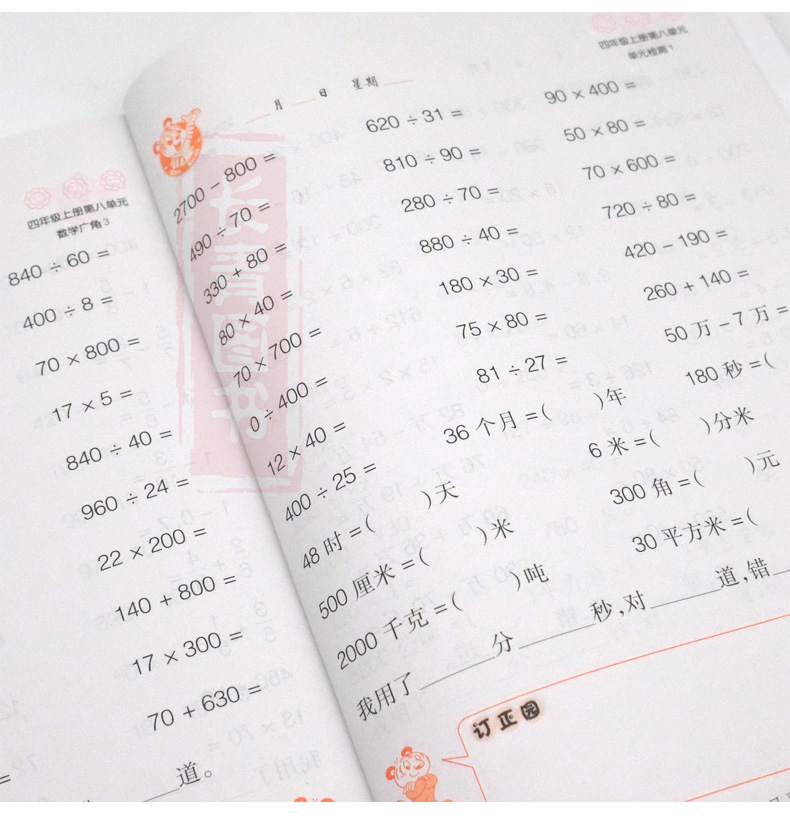 四年级上册第八单元
数学广角3
840 ÷ 60 =
400 ÷ 8 =
70 × 800 =
17 × 5 =
840 ÷ 40 =
960 ÷ 24 =
22 × 200 =
140 + 800 =
17 × 300 =
70 + 630 =
道。
四年级上册第八单元
单元检测1
月 日 星期
2700 − 800 =
620 ÷ 31 =
90 × 400 =
490 ÷ 70 =
810 ÷ 90 =
50 × 80 =
330 + 80 =
280 ÷ 70 =
70 × 600 =
80 × 40 =
880 ÷ 40 =
720 ÷ 80 =
70 × 700 =
180 × 30 =
420 − 190 =
0 ÷ 400 =
75 × 80 =
260 + 140 =
12 × 40 =
81 ÷ 27 =
50 万 − 7 万 =
400 ÷ 25 =
36 个月 =( )年
180 秒 =(
48 时 =( )天
6 米 =( )分米
500 厘米 =( )米
300 角 =( )元
2000 千克 =( )吨
30 平方米 =(
我用了____分____秒,对____道,错__
订正园
长青图书